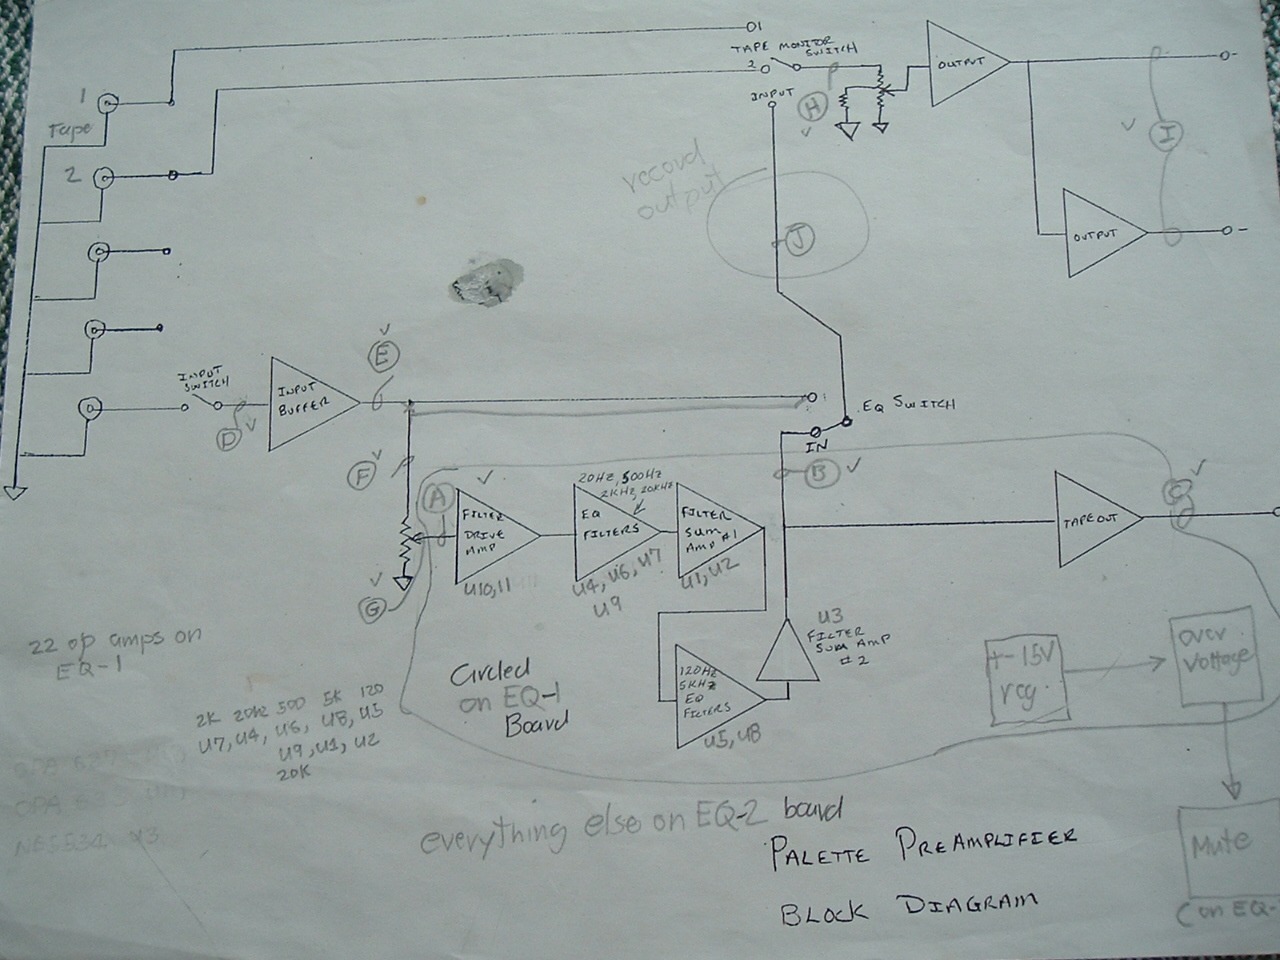 1
Tape
2
01
TAPE MONITOR
SWITCH
2
INPUT
H
OUTPUT
I
OUTPUT
record
output
J
INPUT
SWITCH
D
INPUT
BUFFER
E
EQ SWITCH
IN
B
F
A
G
FILTER
DRIVE
AMP
U10,11
20HZ, 500HZ
2KHZ, 20KHZ
EQ
FILTERS
U4, U6, U7
U9
FILTER
SUM
AMP #1
U1, U2
C
TAPE OUT
U3
FILTER
SUM AMP
#2
120HZ
5KHZ
EQ
FILTERS
U5, U8
+-15V
reg
over
Voltage
Mute
(on EQ-
22 op amps on
EQ-1
2K 20hz 500 5K 120
U7, U4, U6, U8, U5
U9, U1, U2
20K
Circled
on EQ-1
Board
everything else on EQ-2 board
PALETTE PREAMPLIFIER
BLOCK DIAGRAM